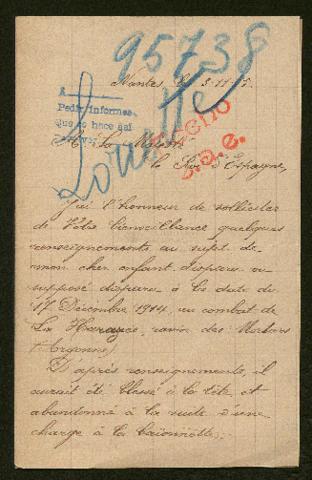 95738
Nantes le 3-11-15.
A
Pedir informes
Que se hace así
Louette
A Sa Majesté
le Roi d'Espagne,
J'ai l'honneur de solliciter
de Votre bienveillance quelques
renseignements au sujet de
mon cher enfant disparu ou
supposé disparu à la date du
17 Décembre 1914, au combat de
La Harazée, ravin des Meurissons
(Argonne)
D'après renseignements, il
aurait été blessé à la tête et
abandonné à la suite d'une
charge à la baïonnette;